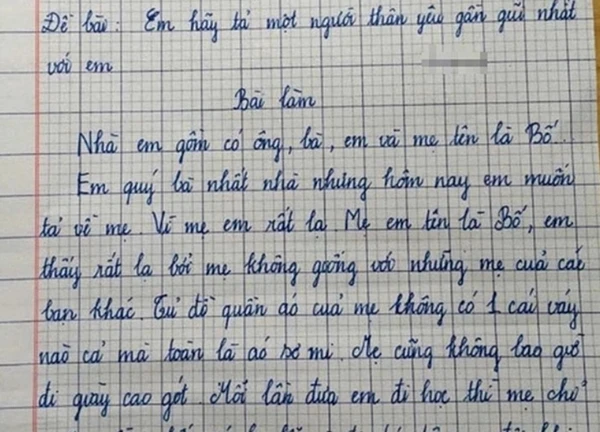 Đề bài: Em hãy tả một người thân yêu gần gũi nhất
với em
Bài làm
Nhà em gồm có ông, bà, em và mẹ tên là Bố.
Em quý bà nhất nhà nhưng hôm nay em muốn
tả về mẹ. Vì mẹ em rất lạ. Mẹ em tên là Bố, em
thấy rất lạ bởi mẹ không goống với những mẹ cuả các
bạn khác. Tủ đồ quần aó cuả mẹ không có 1 cái váy
naò cả mà toàn là aó sơ mi. Mẹ cũng không bao giờ
đi giày cao gót. Mỗi lần đưa em đi học thì mẹ chỉ